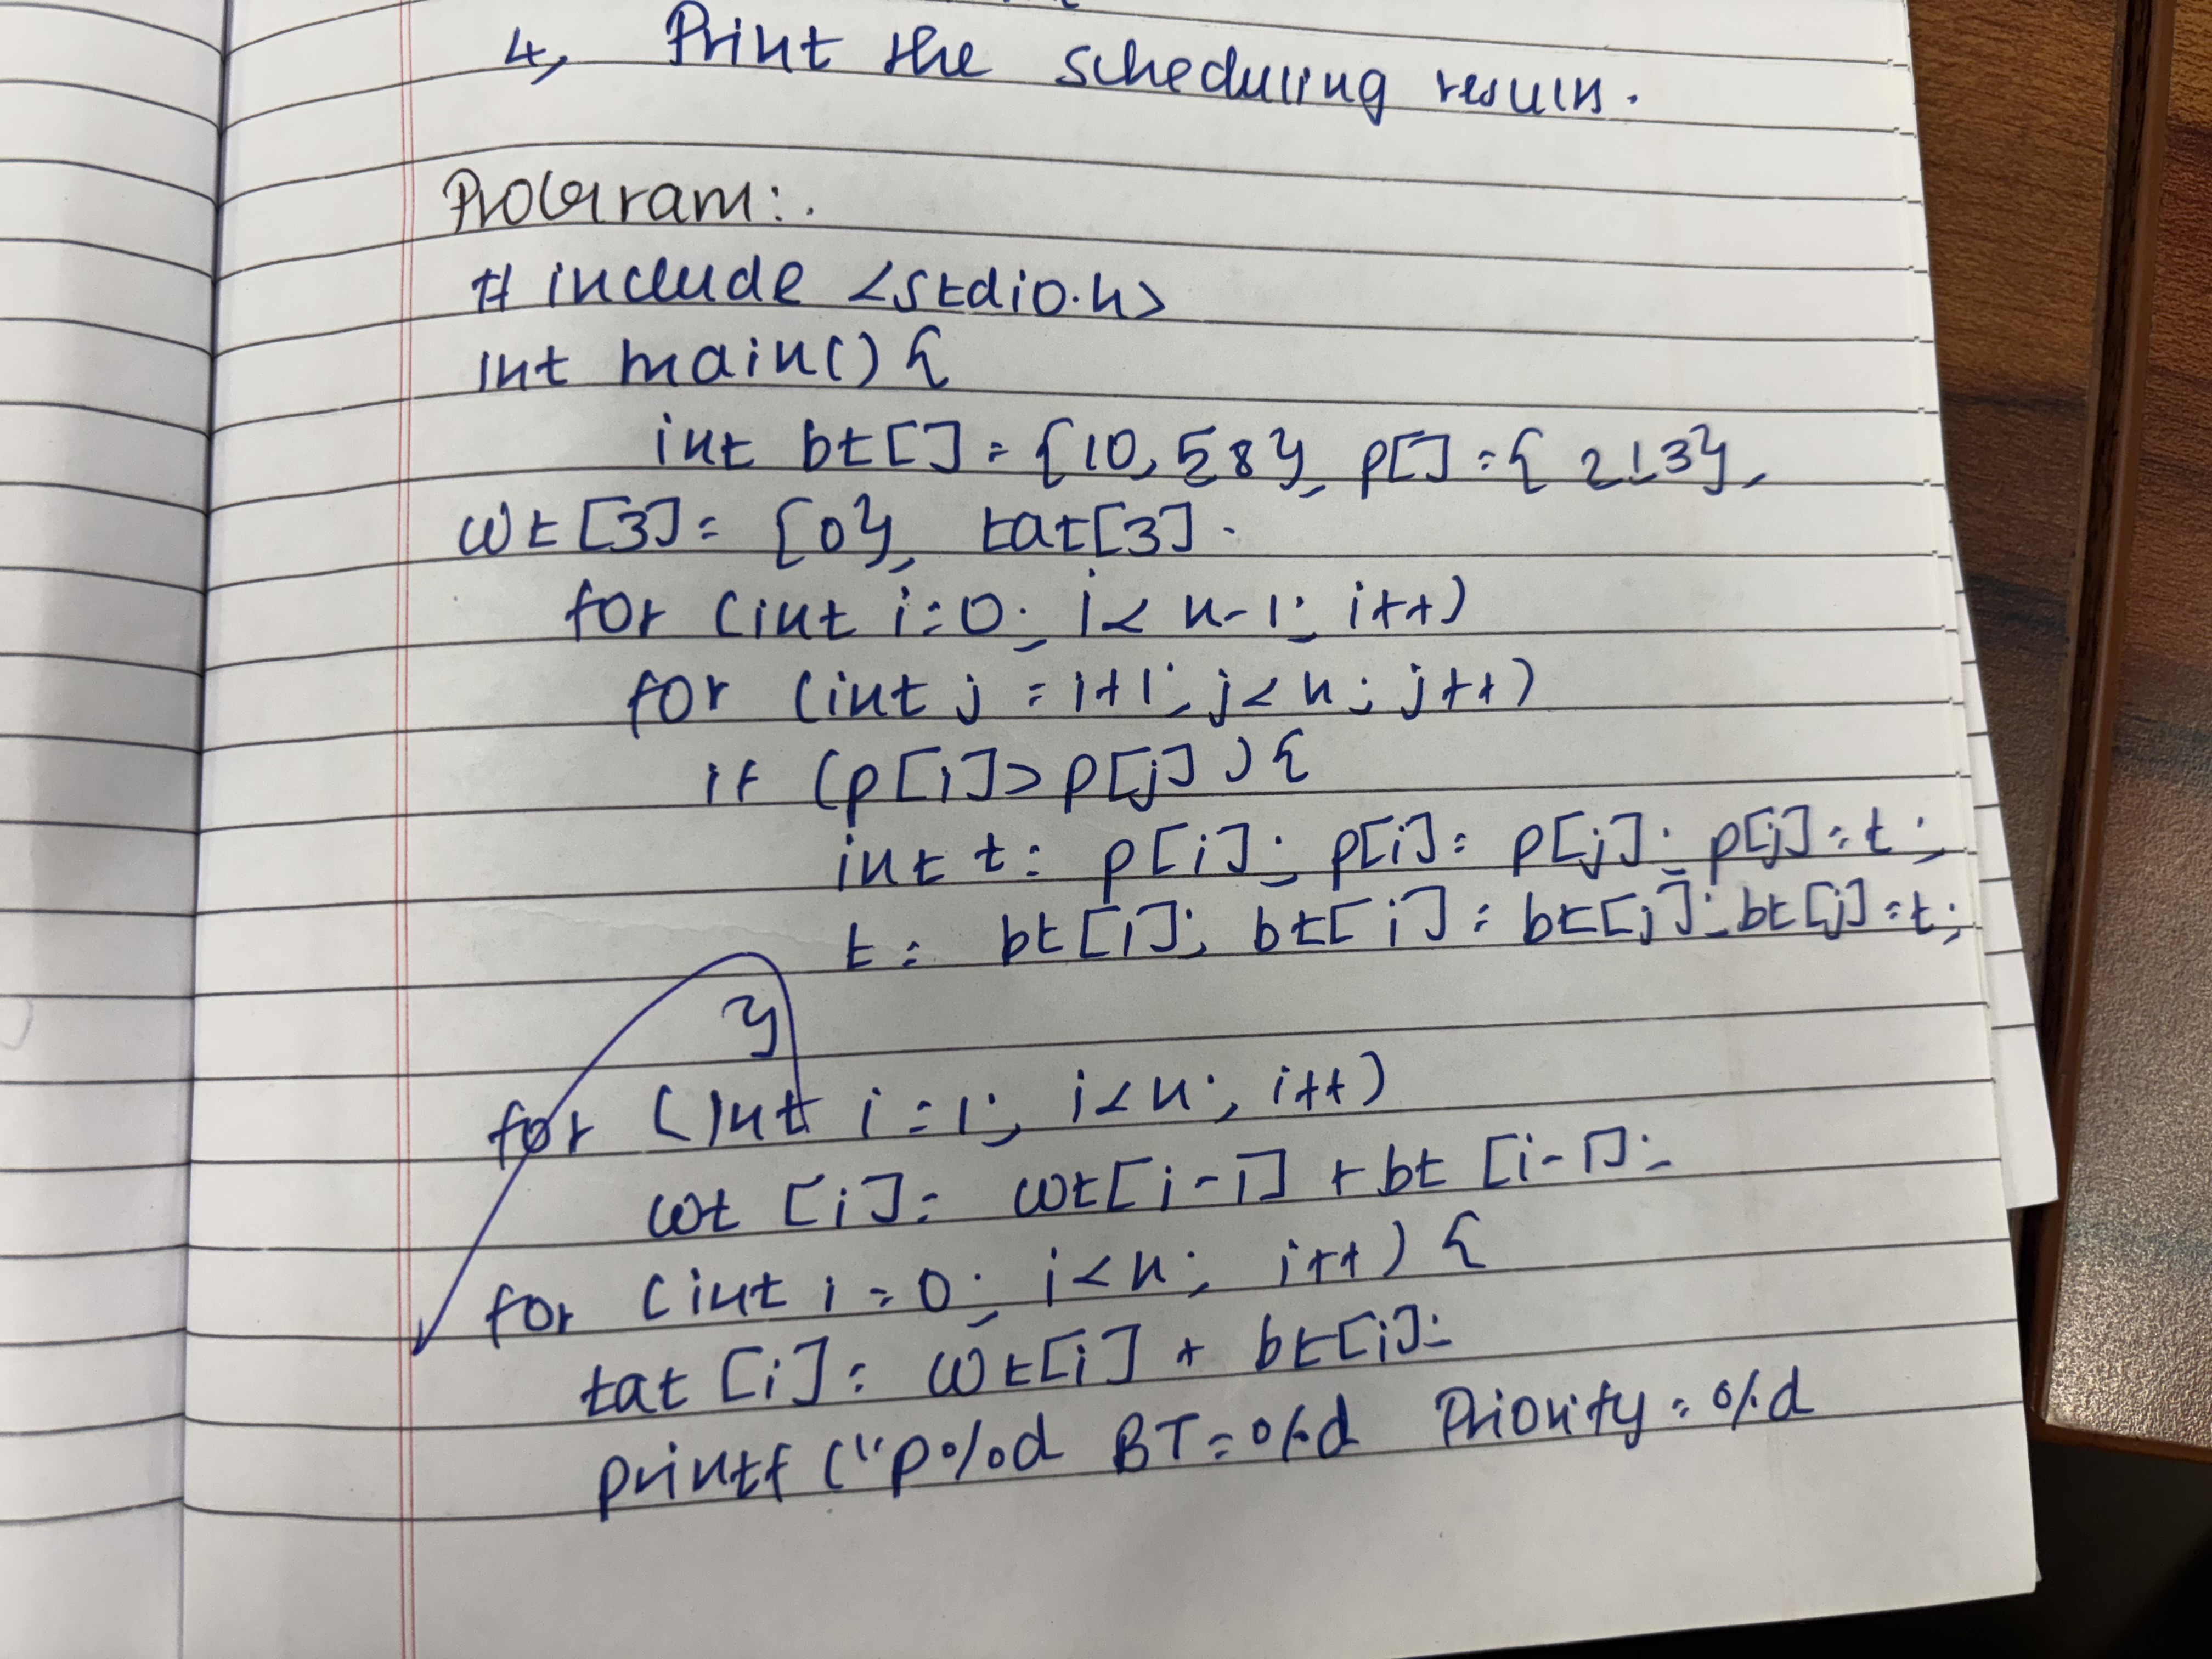 4, Print the scheduling result.
Program:
#include <stdio.h>
int main() {
int bt[] = {10,5,8}, p[] = {2,1,3},
wt[3] = {0}, tat[3];
for (int i=0; i< n-1; i++)
for (int j = i+1; j<n; j++)
if (p[i]>p[j]) {
int t = p[i]; p[i] = p[j]; p[j]=t;
t = bt[i]; bt[i] = bt[j]; bt[j]=t;
}
for (int i=1; i<n; i++)
wt[i] = wt[i-1] + bt[i-1];
for (int i=0; i<n; i++) {
tat[i] = wt[i] + bt[i];
printf("p%d BT=%d Priority=%d